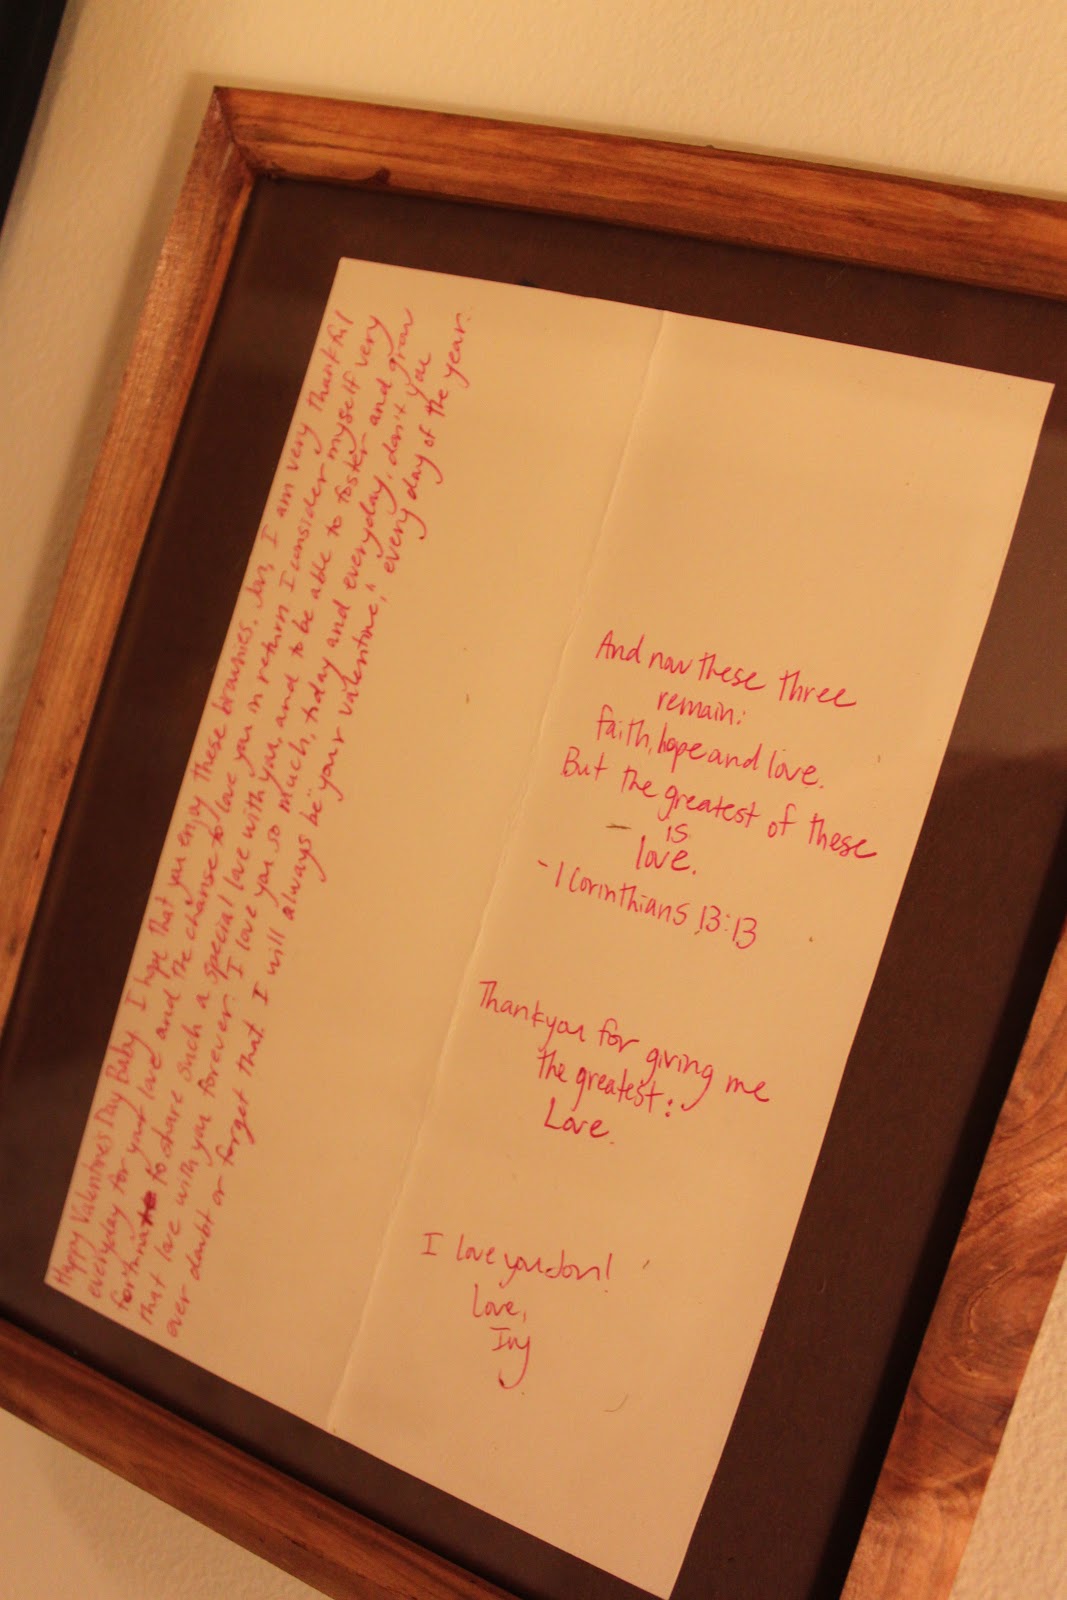 Happy Valentine's Day Baby. I hope that you enjoy these brownies. Jon, I am very thankful
everyday for your love and the chanse to love you in return I consider myself very
fortunate to share such a special love with you, and to be able to foster and grow
that love with you forever. I love you so much, today and everyday, don't you
ever doubt or forget that. I will always be "your valentine," every day of the year.
And now these three
remain:
faith, hope and love.
But the greatest of these
is
love.
- 1 Corinthians 13:13
Thank you for giving me
the greatest:
Love.
I love you Jon!
Love,
Ivy